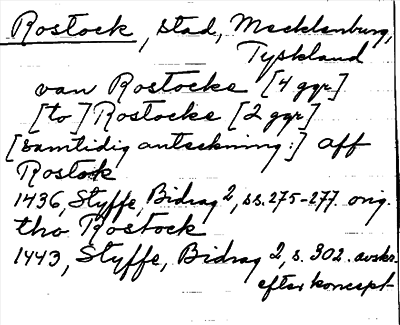 Rostock, stad, Mecklenburg,
Tyskland
van Rostocke [4 ggr]
[to] Rostocke [2 ggr]
[samtidig anteckning:] aff
Rostok
1436, Styffe, Bidrag 2, ss. 275-277. orig.
tho Rostock
1443, Styffe, Bidrag 2, s. 302. avskr.
efter koncept